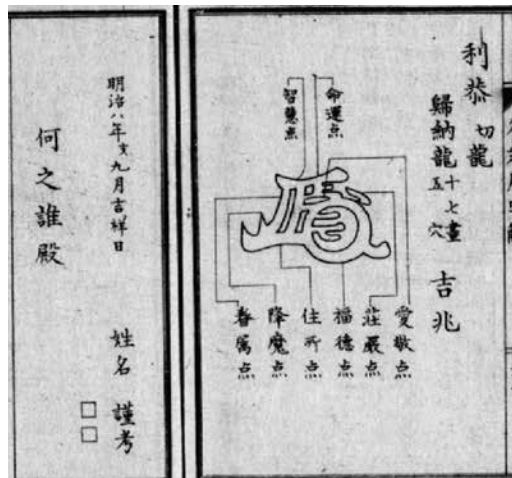 利恭 切龍
歸納龍 十七畫 五穴 吉兆
命運点
智慧点
愛敬点
莊嚴点
福德点
住所点
降魔点
眷属点
明治八年亥九月吉祥日
姓名 謹考
何之誰殿